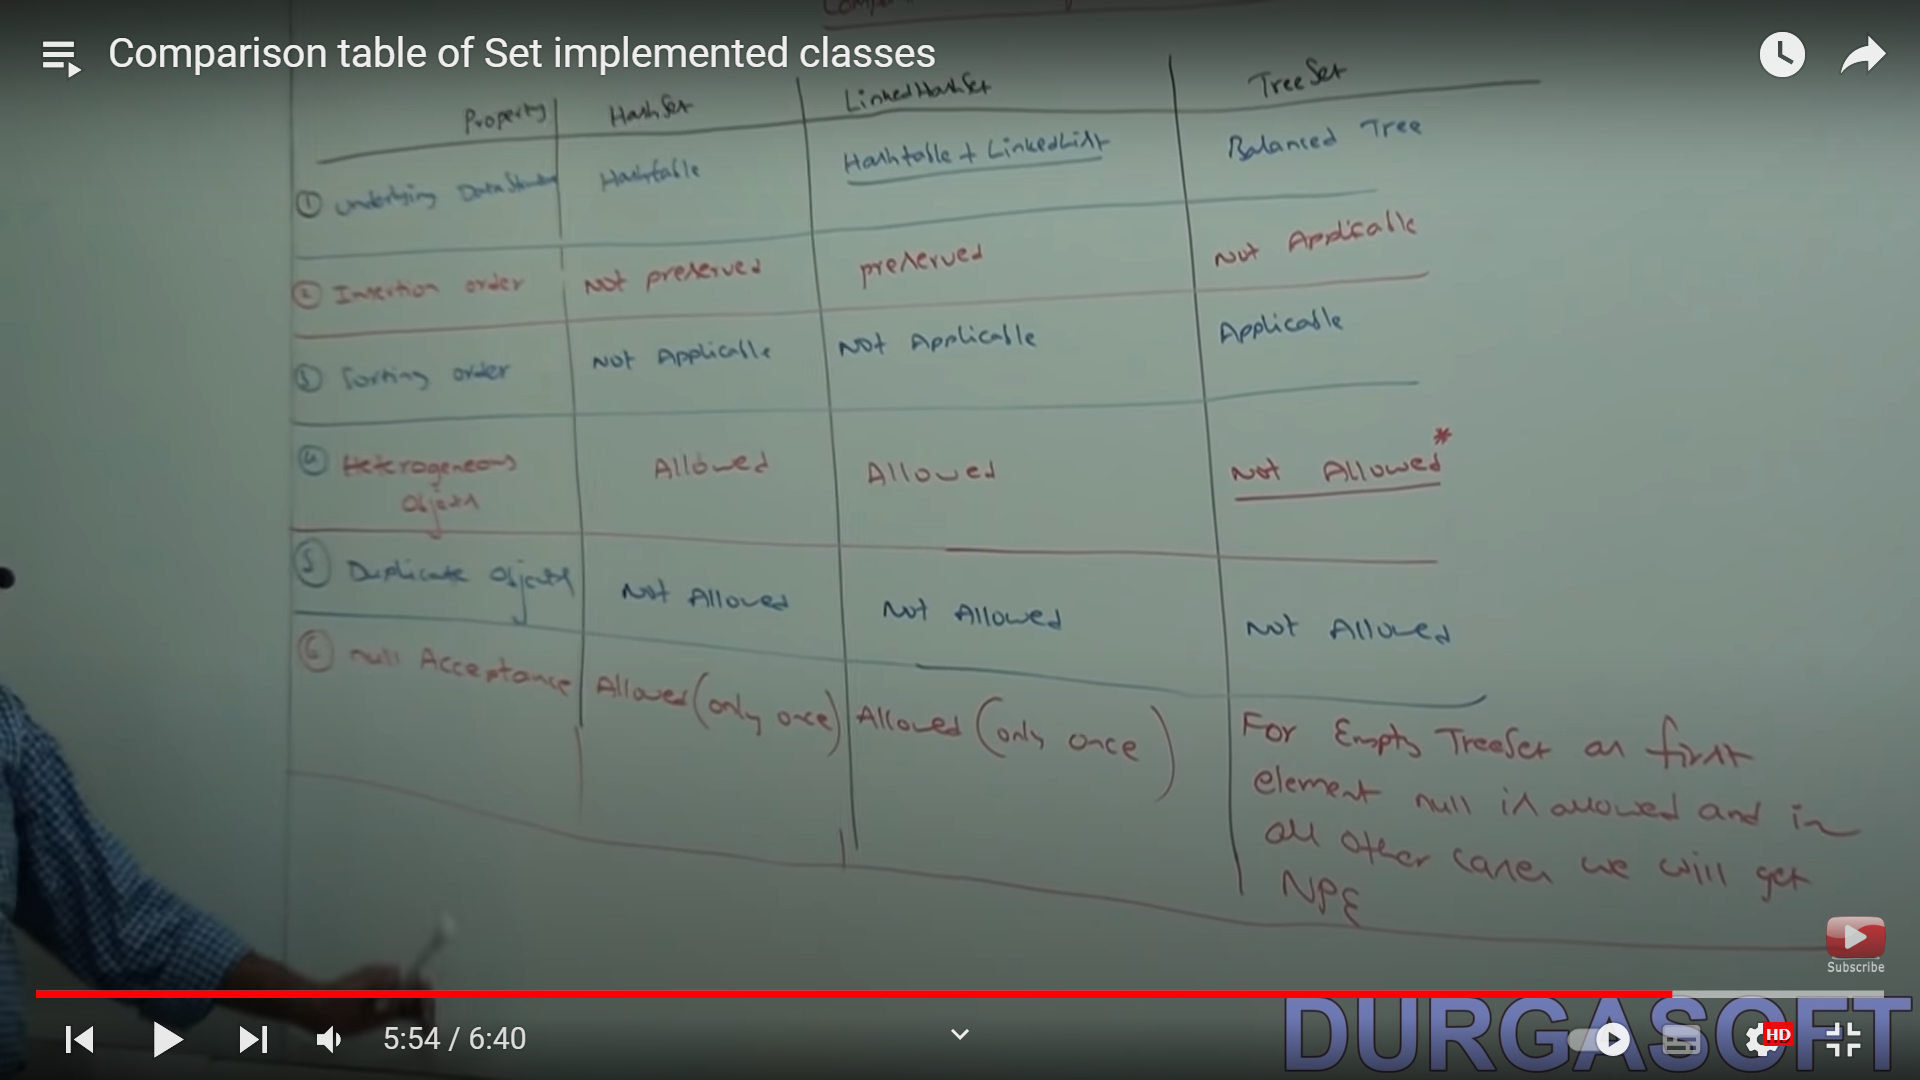 Comparison table of Set implemented classes
Property HashSet LinkedHashSet TreeSet
① Underlying DataStructure Hashtable Hashtable + LinkedList Balanced Tree
② Insertion order Not preserved preserved Not Applicable
③ Sorting order Not Applicable Not Applicable Applicable
④ Heterogeneous Allowed Allowed Not Allowed*
Objects
⑤ Duplicate Objects Not Allowed Not Allowed Not Allowed
⑥ null Acceptance Allowed (only once) Allowed (only once) For Empty TreeSet as first
element null is allowed and in
all other cases we will get
NPE
Subscribe
DURGASOFT
5:54 / 6:40
HD